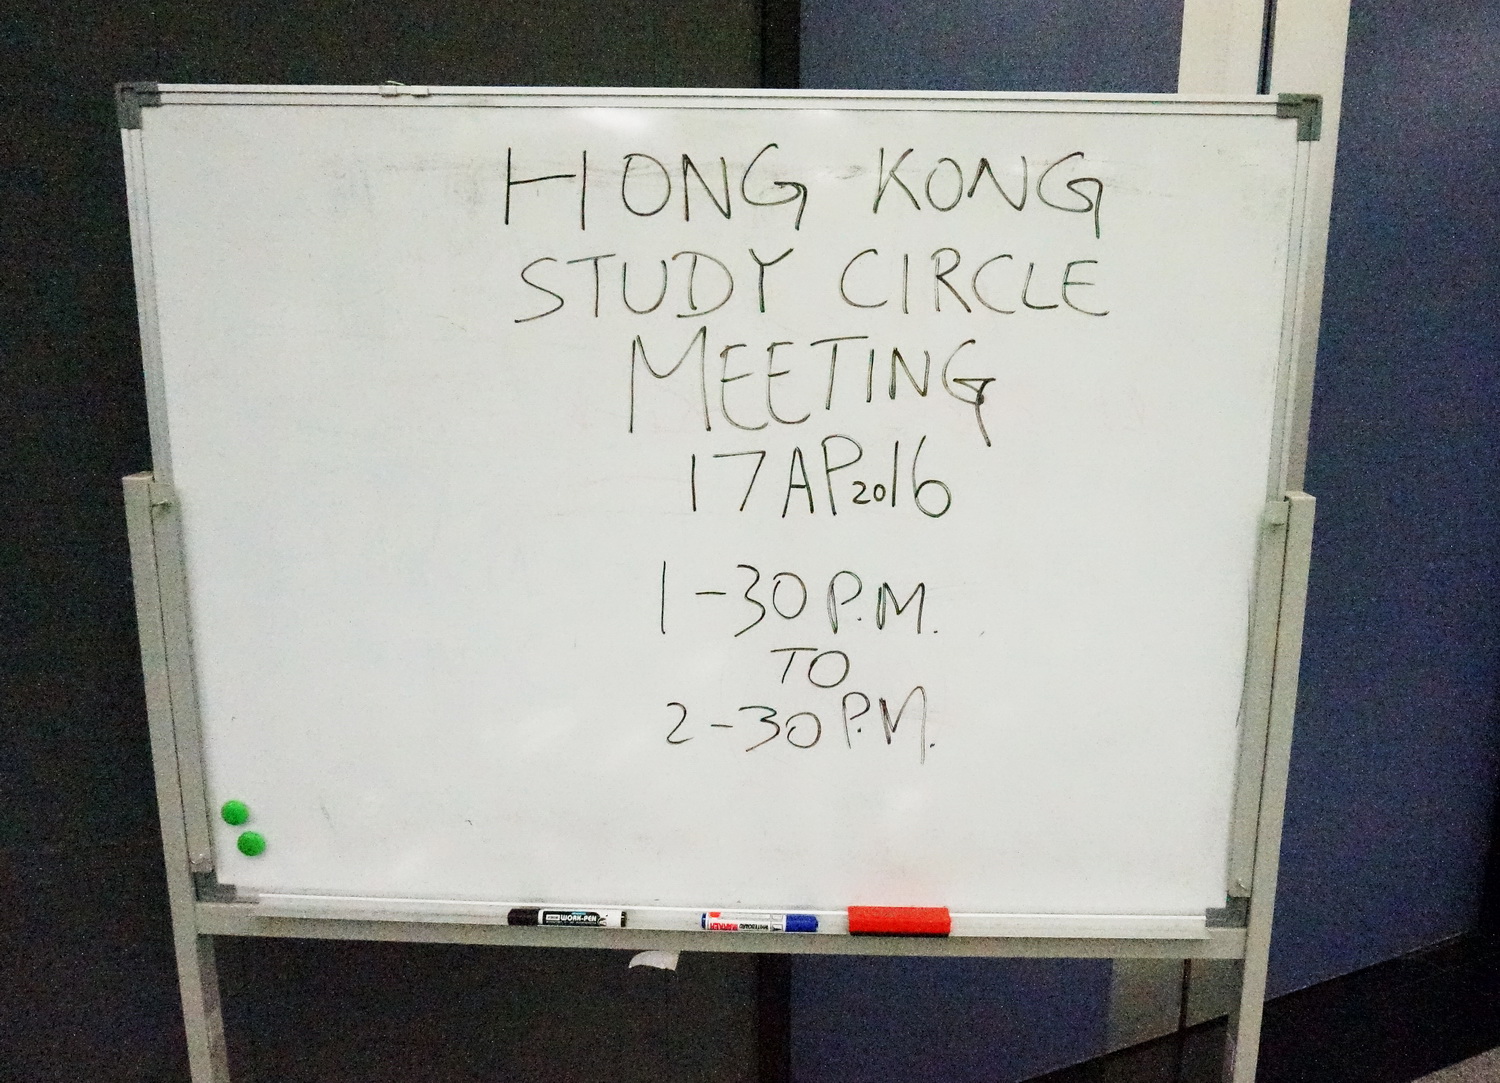 HONG KONG
STUDY CIRCLE
MEETING
17 AP 2016
1-30 P.M.
TO
2-30 P.M.
WORK-PEN